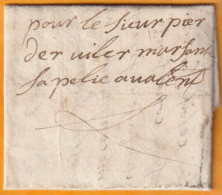 pour le sieur pier
de r viler marsant
sa pelie a valens